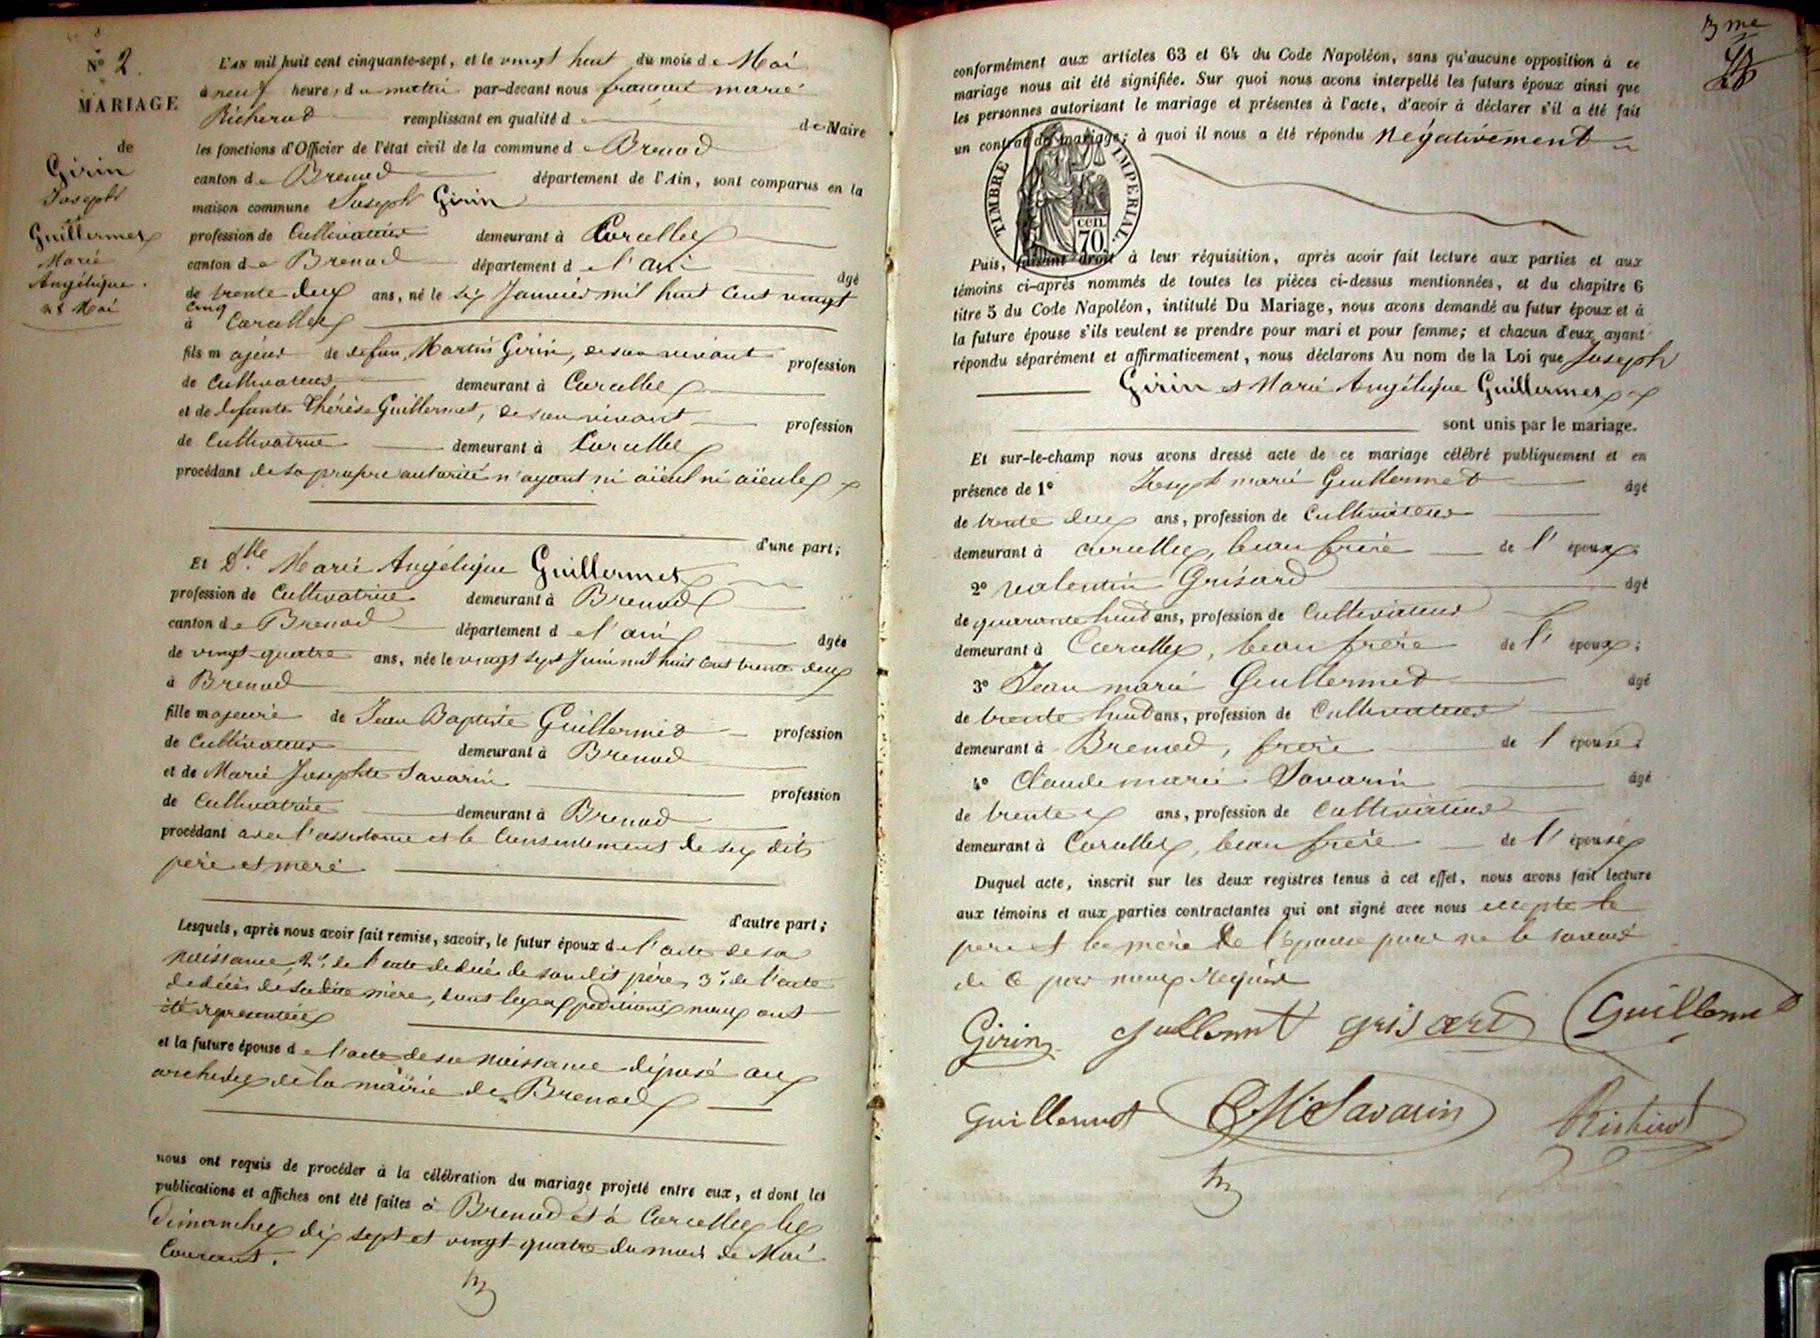 N° 2.
MARIAGE
de
Girin
Joseph
Guillermet
Marie
Angélique.
28 Mai
L'AN mil huit cent cinquante-sept, et le vingt huit du mois de Mai
à neuf heures du matin par-devant nous françois marie
Richerod remplissant en qualité d de Maire
les fonctions d'Officier de l'état civil de la commune d e Brenod
canton d e Brenod département de l'Ain, sont comparus en la
maison commune Joseph Girin
profession de Cultivateur demeurant à Corcelles
canton d e Brenod département d e l'ain âgé
de trente deux ans, né le six Janvier mil huit cent vingt
cinq
à Corcelles
fils majeur de defun Martin Girin, de son vivant profession
de Cultivateur demeurant à Corcelles
et de defunte Thérèse Guillermet, de son vivant profession
de Cultivatrice demeurant à Corcelles
procédant de sa propre autorité n'ayant ni aïeul ni aïeules
d'une part;
Et Dlle Marie Angélique Guillermet
profession de Cultivatrice demeurant à Brenod
canton d e Brenod département d e l'ain âgée
de vingt-quatre ans, née le vingt sept Juin mil huit cent trente deux
à Brenod
fille majeure de Jean Baptiste Guillermet profession
de Cultivateur demeurant à Brenod
et de Marie Josephte Savarin profession
de Cultivatrice demeurant à Brenod
procédant avec l'assistance et le Consentement de ses dits
père et mère
d'autre part;
Lesquels, après nous avoir fait remise, savoir, le futur époux d e l'acte de sa
naissance, 2°. de l'acte de décès de son dit père, 3°. de l'acte
de décès de sa dite mère, dont les expéditions nous ont
été représentées
et la future épouse d e l'acte de sa naissance déposé aux
archives de la mairie de Brenod
nous ont requis de procéder à la célébration du mariage projeté entre eux, et dont les
publications et affiches ont été faites à Brenod et à Corcelles les
Dimanches dix sept et vingt-quatre du mois de Mai
Courant.
3me
conformément aux articles 63 et 64 du Code Napoléon, sans qu'aucune opposition à ce
mariage nous ait été signifiée. Sur quoi nous avons interpellé les futurs époux ainsi que
les personnes autorisant le mariage et présentes à l'acte, d'avoir à déclarer s'il a été fait
un contrat de mariage; à quoi il nous a été répondu négativement
TIMBRE IMPERIAL.
cen
70
Puis, faisant droit à leur réquisition, après avoir fait lecture aux parties et aux
témoins ci-après nommés de toutes les pièces ci-dessus mentionnées, et du chapitre 6
titre 5 du Code Napoléon, intitulé Du Mariage, nous avons demandé au futur époux et à
la future épouse s'ils veulent se prendre pour mari et pour femme; et chacun d'eux ayant
répondu séparément et affirmativement, nous déclarons Au nom de la Loi que Joseph
Girin et Marie Angélique Guillermet
sont unis par le mariage.
Et sur-le-champ nous avons dressé acte de ce mariage célébré publiquement et en
présence de 1° Joseph marie Guillermet âgé
de trente deux ans, profession de Cultivateur
demeurant à Corcelles, beau frère de l'époux;
2° valentin Grisard âgé
de quarante huit ans, profession de Cultivateur
demeurant à Corcelles, beau frère de l'époux;
3° Jean marie Guillermet âgé
de trente huit ans, profession de Cultivateur
demeurant à Brenod, frère de l'épouse
4° Claude marie Savarin âgé
de trente ans, profession de Cultivateur
demeurant à Corcelles, beau frère de l'épouse
Duquel acte, inscrit sur les deux registres tenus à cet effet, nous avons fait lecture
aux témoins et aux parties contractantes qui ont signé avec nous excepté le
père et la mère de l'épouse pour ne le savoir
de ce par nous requis
Girin Guillermet grisard Guillermet
Guillermet CM Savarin Richerod